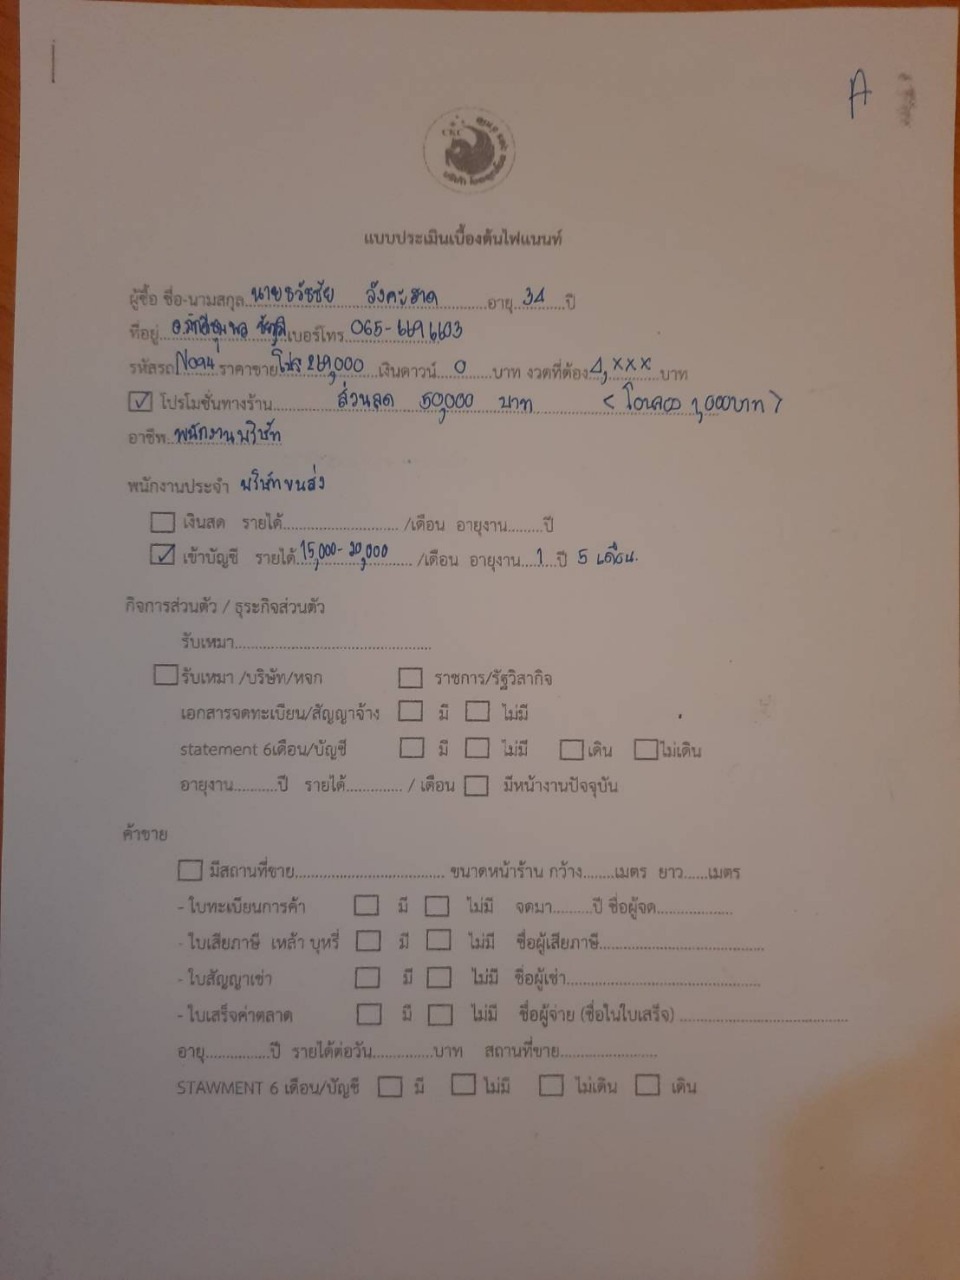 A
แบบประเมินเบื้องต้นไฟแนนท์
ผู้ซื้อ ชื่อ-นามสกุล นายธวัชชัย วังคะฮาด อายุ 34 ปี
ที่อยู่ เบอร์โทร 065-6696603
รหัสรถ N094 ราคาขาย โปร 269,000 เงินดาวน์ 0 บาท งวดที่ต้อง 4,xxx บาท
☑ โปรโมชั่นทางร้าน ส่วนลด 50,000 บาท < โอนจอง 1,000บาท >
อาชีพ พนักงานบริษัท
พนักงานประจำ บริษัทขนส่ง
☐ เงินสด รายได้............................ /เดือน อายุงาน........ปี
☑ เข้าบัญชี รายได้ 15,000-20,000 /เดือน อายุงาน 1 ปี 5 เดือน.
กิจการส่วนตัว / ธุระกิจส่วนตัว
รับเหมา................................................
☐ รับเหมา /บริษัท/หจก ☐ ราชการ/รัฐวิสากิจ
เอกสารจดทะเบียน/สัญญาจ้าง ☐ มี ☐ ไม่มี
statement 6เดือน/บัญชี ☐ มี ☐ ไม่มี ☐ เดิน ☐ ไม่เดิน
อายุงาน..........ปี รายได้............. / เดือน ☐ มีหน้างานปัจจุบัน
ค้าขาย
☐ มีสถานที่ขาย.................................... ขนาดหน้าร้าน กว้าง........เมตร ยาว......เมตร
- ใบทะเบียนการค้า ☐ มี ☐ ไม่มี จดมา..........ปี ชื่อผู้จด...................
- ใบเสียภาษี เหล้า บุหรี่ ☐ มี ☐ ไม่มี ชื่อผู้เสียภาษี........................................
- ใบสัญญาเช่า ☐ มี ☐ ไม่มี ชื่อผู้เช่า...............................................
- ใบเสร็จค่าตลาด ☐ มี ☐ ไม่มี ชื่อผู้จ่าย (ชื่อในใบเสร็จ) .........................................
อายุ................ปี รายได้ต่อวัน...............บาท สถานที่ขาย........................
STAWMENT 6 เดือน/บัญชี ☐ มี ☐ ไม่มี ☐ ไม่เดิน ☐ เดิน